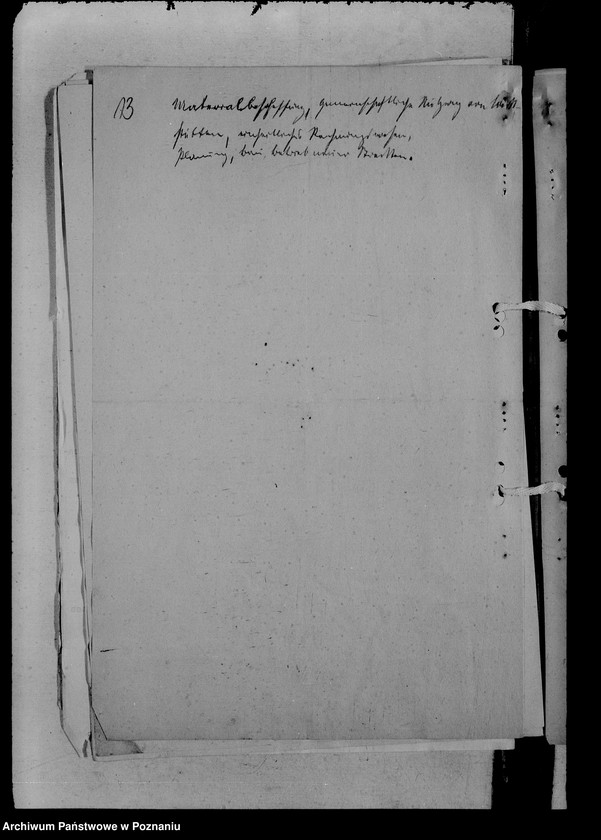 13 Materialbeschaffung, gemeinschaftliche Nutzung von Werk-
stätten, einheitliches Rechnungswesen,
Planung, Bau, Betrieb neuer Strecken.
Archiwum Państwowe w Poznaniu